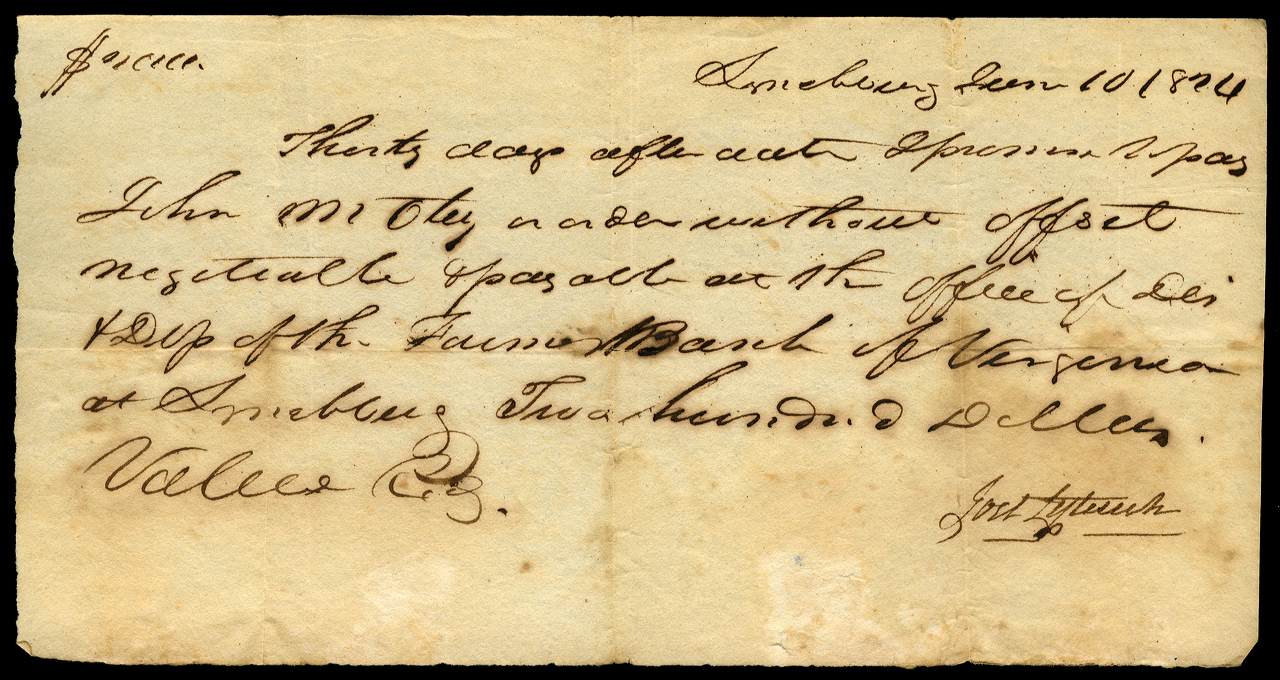 $200.
Lynchburg June 10 1824
Thirty days after date I promise to pay
John M Otey or order without offset
negotiable & payable at the office of Dis
& Dep of the Farmers Bank of Virginia
at Lynchburg Two hundred Dollars.
Value Rec.